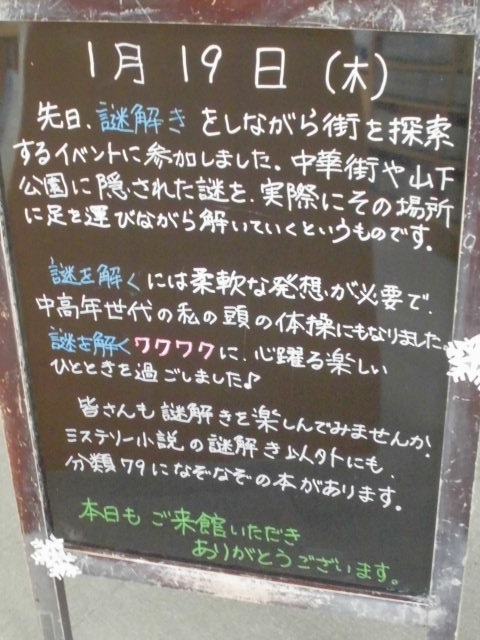 1月19日(木)
先日、謎解きをしながら街を探索
するイベントに参加しました。中華街や山下
公園に隠された謎を、実際にその場所
に足を運びながら解いていくというものです。
謎を解くには柔軟な発想が必要で、
中高年世代の私の頭の体操にもなりました。
謎を解くワクワクに、心躍る楽しい
ひとときを過ごしました♪
皆さんも謎解きを楽しんでみませんか。
ミステリー小説の謎解き以外にも、
分類79になぞなぞの本があります。
本日もご来館いただき
ありがとうございます。